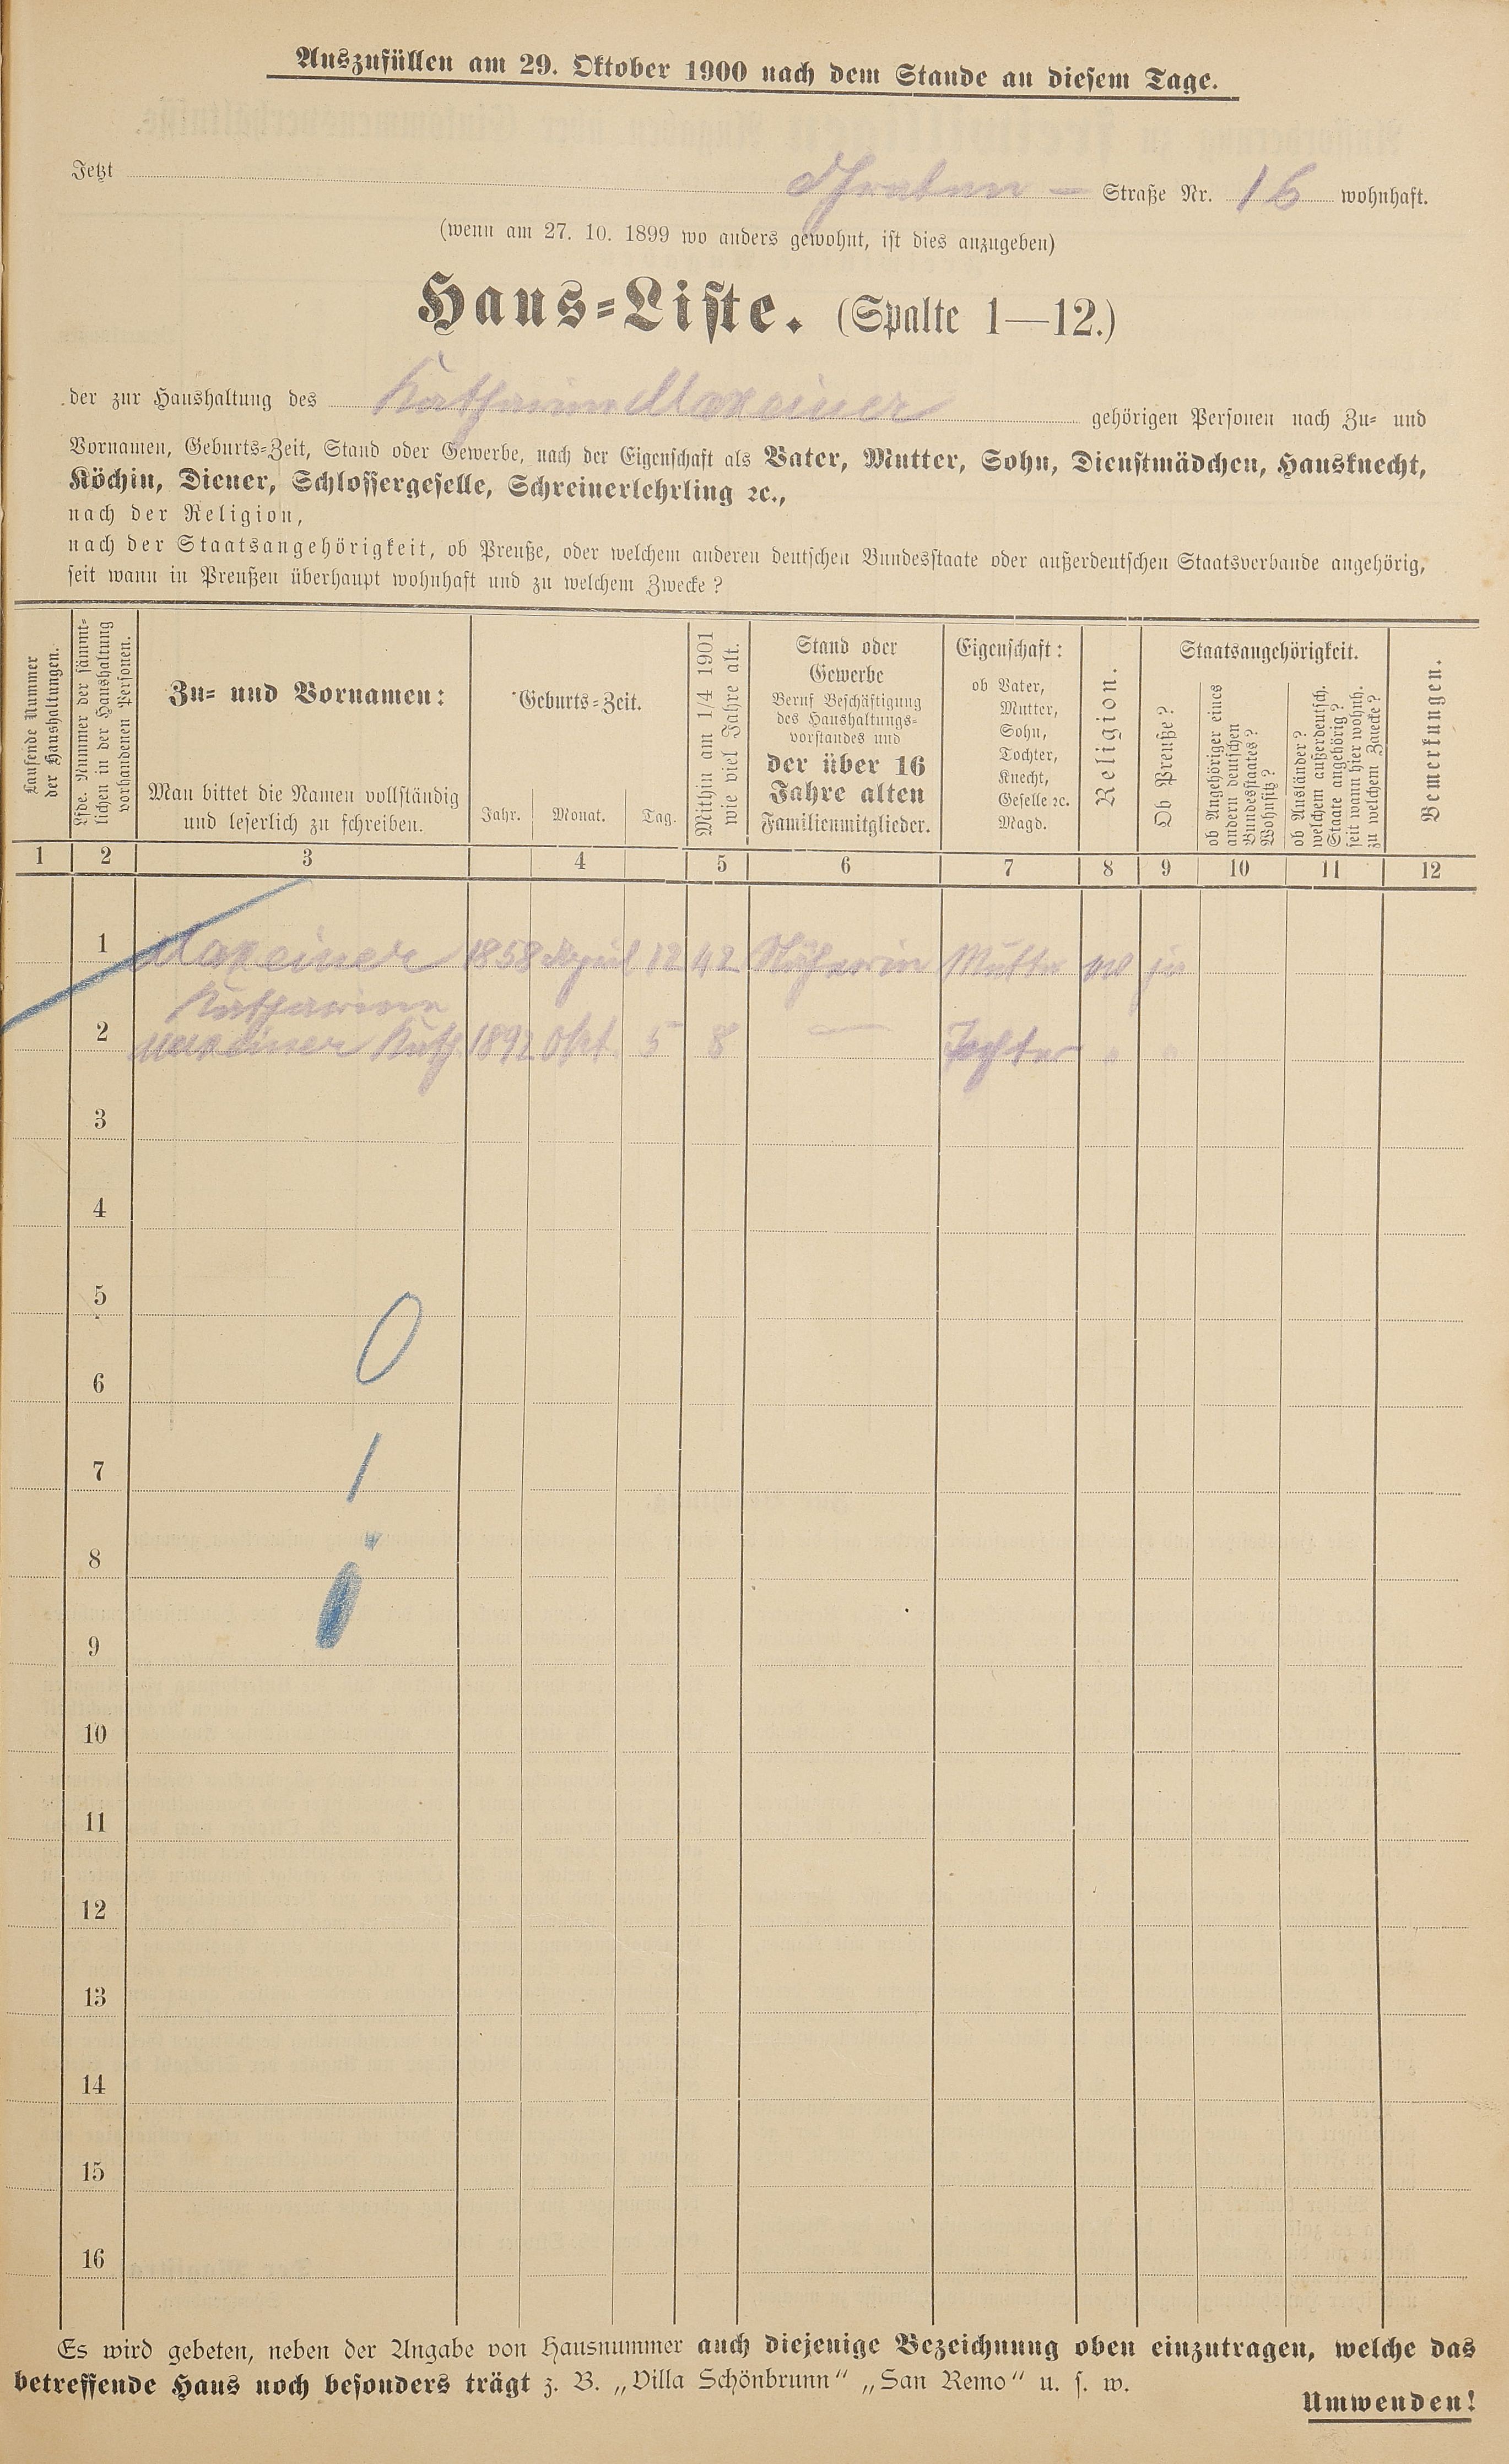 Auszufüllen am 29. Oktober 1900 nach dem Stande an diesem Tage.
Jetzt Straße Nr. 16 wohnhaft.
(wenn am 27. 10. 1899 wo anders gewohnt, ist dies anzugeben)
Haus-Liste. (Spalte 1—12.)
der zur Haushaltung des Maxeiner gehörigen Personen nach Zu- und
Vornamen, Geburts-Zeit, Stand oder Gewerbe, nach der Eigenschaft als Vater, Mutter, Sohn, Dienstmädchen, Hausknecht,
Köchin, Diener, Schlossergeselle, Schreinerlehrling ꝛc.,
nach der Religion,
nach der Staatsangehörigkeit, ob Preuße, oder welchem anderen deutschen Bundesstaate oder außerdeutschen Staatsverbande angehörig,
seit wann in Preußen überhaupt wohnhaft und zu welchem Zwecke?
Laufende Nummer
der Haushaltungen.
Lfde. Nummer der sämmt-
lichen in der Haushaltung
vorhandenen Personen.
Zu- und Vornamen:
Man bittet die Namen vollständig
und leserlich zu schreiben.
Geburts-Zeit.
Jahr. Monat. Tag.
Mithin am 1/4 1901
wie viel Jahre alt.
Stand oder
Gewerbe
Beruf Beschäftigung
des Haushaltungs-
vorstandes und
der über 16
Jahre alten
Familienmitglieder.
Eigenschaft:
ob Vater,
Mutter,
Sohn,
Tochter,
Knecht,
Geselle ꝛc.
Magd.
Religion.
Staatsangehörigkeit.
Ob Preuße?
ob Angehöriger eines
andern deutschen
Bundesstaates?
Wohnsitz?
ob Ausländer?
welchem außerdeutsch.
Staate angehörig?
seit wann hier wohnh.
zu welchem Zwecke?
Bemerkungen.
1 2 3 4 5 6 7 8 9 10 11 12
1 Maxeiner 1858 April 12 42 Näherin Mutter ja
Katharine
2 Maxeiner Kath. 1892 Okt. 5 8 — Tochter " "
3
4
5
6
7
8
9
10
11
12
13
14
15
16
Es wird gebeten, neben der Angabe von Hausnummer auch diejenige Bezeichnung oben einzutragen, welche das
betreffende Haus noch besonders trägt z. B. „Villa Schönbrunn“ „San Remo“ u. s. w.
Umwenden!